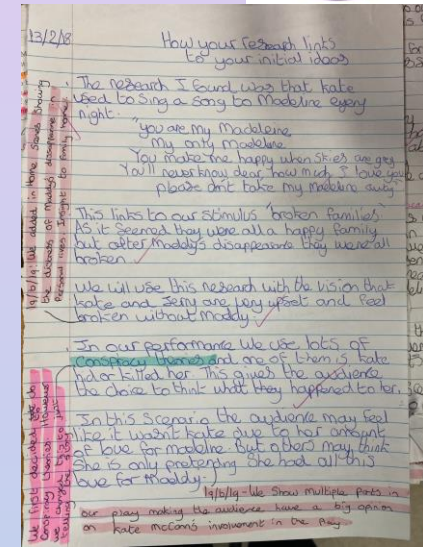 13/2/18
How your research links
to your initial ideas
The research I found was that kate
used to sing a song to Madeline every
night.
"you are my Madeleine
My only madeline
You make me happy when skies are grey
You'll never know dear how much I love you
please don't take my madeline away"
This links to our stimulus 'broken families'
As it seemed they were all a happy family
but after Maddy's disappearance they were all
broken.
We will use this research with the vision that
kate and Jerry are very upset and feel
broken without Maddy.
In our performance we use lots of
conspiracy themes and one of them is kate
had or killed her. This gives the audience
the choice to think what they happened to her.
In this scenario the audience may feel
like it wasn't kate due to her amount
of love for madeline but others may think
she is only pretending she had all this
love for Maddy.
19/6/19 - We show multiple parts in
our play making the audience have a big opinion
on kate McCann's involvement in the play.
19/6/19: We added in home scenes showing
the distress of Maddy's disappearance in
personal lives. Insight to family home.
We first decided to
conspiracy theories However
we changed this to just
telling the story